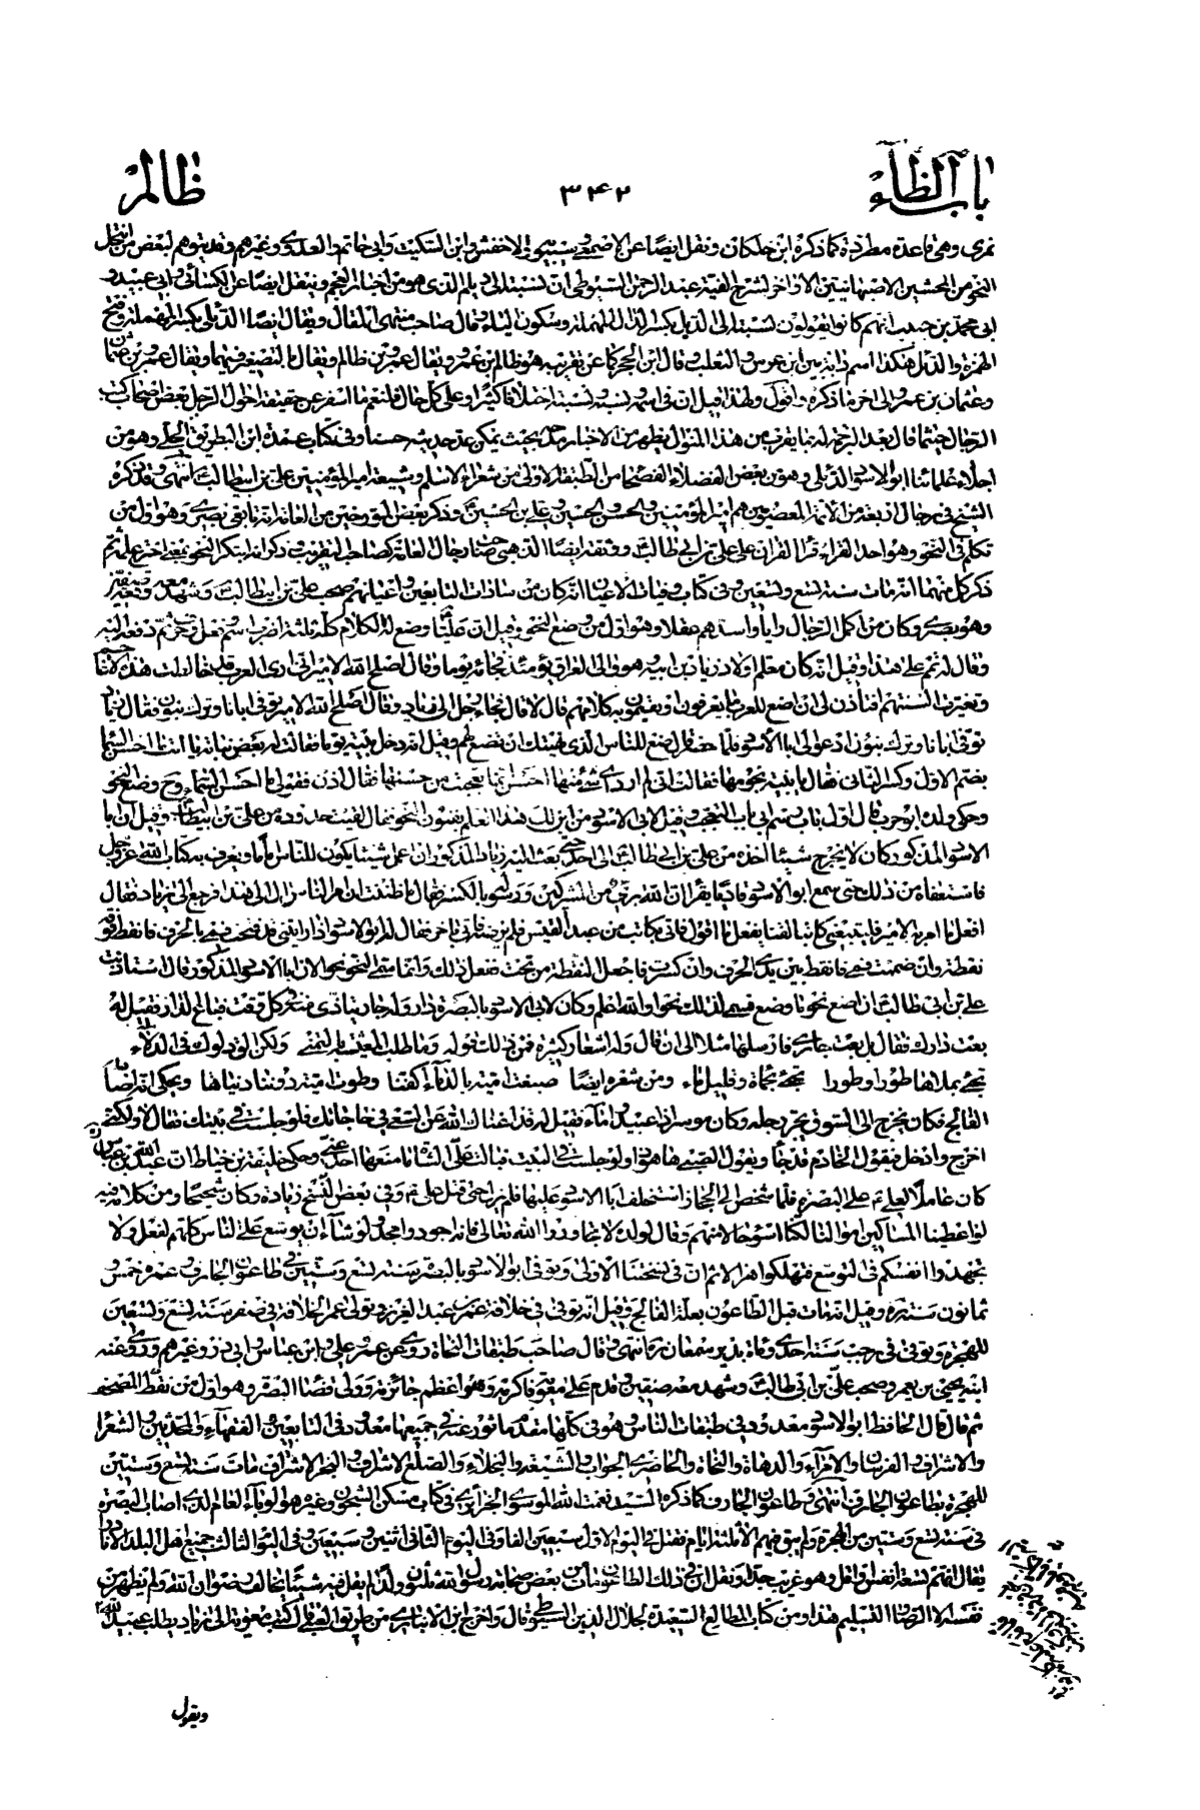 باب الظاء
٣٤٢
ظالم
نمرى وهى قاعدة مطردة كما ذكره ابن خلكان ونقل ايضا عن الاصمعى وسيبويه والاخفش وابن السكيت وابى حاتم والعدوى وغيرهم وقد يتوهم لبعض من انتحل
النحو من المحشين الاصبهانيين الاواخر لشرح الفية عبد الرحمن السيوطى ان نسبته الى ديلم الذى هو من اخبار العجم وينقل ايضا عن الكسائى وابى عبيد و
ابى محمد بن حبيب انهم كانوا يقولون نسبته الى الديل بكسر الدال المهملة وسكون الياء وقال صاحب منتهى المقال ويقال ايضا الدئلى بكسر المهملة وفتح
الهمزة والدئل هكذا اسم دابة بين ابن عرس والثعلب وقال ابن الحجر كما عن تقريبه هو ظالم بن عمرو ويقال عمرو بن ظالم ويقال بالتصغير فيهما ويقال عمر بن عثمان
وعثمان بن عمرو الى اخر ما ذكره واقول ولهذا قيل ان فى اسمه ونسبه ونسبته اختلافا كثيرا وعلى كل حال فلنعم ما اسفر عن حقيقة احوال الرجل بعض اصحاب كتب
الرجال حيثما قال بعد الترجمة له بما يقرب من هذا المنوال يظهر من الاخبار مدحه بحيث يمكن عد حديثه حسنا وفى كتاب عمدة ابن البطريق الحلى وهو من
اجلاء علمائنا ابو الاسود الدئلى وهو من بعض الفضلاء الفصحاء من الطبقة الاولى من شعراء الاسلام وشيعة امير المؤمنين على بن ابيطالب انتهى وقد ذكره
الشيخ فى رجال اربعة من الائمة المعصومين هم امير المؤمنين والحسن والحسين وعلى بن الحسين وذكر بعض المورخين من العامة انه تابعى بصرى وهو اول من
تكلم فى النحو وهو احد القراء قرأ القران على على بن ابى طالب ووثقه ايضا الذهبى صاحب رجال العامة كصاحب التقريب وذكر انه ابتكر النحو بعد اخترع على ثم
ذكر كل منهما انه مات سنة تسع وستين وفى كتاب وفيات الاعيان انه كان من سادات التابعين واعيانهم صحب على بن ابيطالب وشهد معه وقعة صفين
وهو بصرى وكان من اكمل الرجال رايا واسدهم عقلا وهو اول من وضع النحو وقيل ان عليا وضع له الكلام كله ثلثة اضرب اسم وفعل وحرف ثم دفعه اليه
وقال له تمم على هذا وقيل انه كان معلم اولاد زياد بن ابيه وهو والى العراق يومئذ فجائه يوما وقال اصلح الله الامير انى ارى العرب قد خالطت هذه الاعاجم
وتغيرت السنتهم افتاذن لى ان اضع للعرب ما يعرفون او يقيمون به كلامهم قال لا قال فجاء رجل الى زياد وقال اصلح الله الامير توفى ابانا وترك بنون فقال زياد
توفى ابانا وترك بنون ادعوا لى ابا الاسود فلما حضر قال ضع للناس الذى نهيتك ان تضع لهم وقيل انه دخل بيته يوما فقالت له بعض بناته يا ابت ما احسن السماء
بضم الاول وكسر الثانى فقال يا بنية نجومها فقالت انى لم ارد اى شىء منها احسن انما تعجبت من حسنها فقال اذن فقولى ما احسن السماء وح وضع النحو
وحكى ولده ابو حرب قال اول باب رسم ابى باب التعجب وقيل لابى الاسود من اين لك هذا العلم يعنون النحو فقال لقنت حدوده من على بن ابيطالب وقيل ان ابا
الاسود المذكور كان لا يخرج شيئا اخذه من على بن ابى طالب الى احد حتى بعث اليه زياد المذكور ان اعمل شيئا يكون للناس اماما ويعرف به كتاب الله عز وجل
فاستعفاه من ذلك حتى سمع ابو الاسود قاريا يقرأ ان الله برىء من المشركين ورسوله بالكسر فقال ما ظننت ان امر الناس ال الى هذا فرجع الى زياد فقال
افعل ما امر به الامير فليبغنى كاتبا لقنا يفعل ما اقول فاتى بكاتب من عبد القيس فلم يرضه فاتى باخر فقال له ابو الاسود اذا رايتنى قد فتحت فمى بالحرف فانقط فوقه
نقطة وان ضممت فمى فانقط بين يدى الحرف وان كسرت فاجعل النقطة من تحت ففعل ذلك وانما سمى النحو نحوا لان ابا الاسود المذكور قال استاذنت
على بن ابى طالب ان اضع نحو ما وضع فسمى لذلك نحوا والله اعلم وكان لابى الاسود بالبصرة دار وله جار يتاذى منه فى كل وقت فباع الدار فقيل له
بعت دارك فقال بل بعت جارى فارسلها مثلا الى ان قال وله اشعار كثيرة فمن ذلك قوله وما طلب المعيشة بالتمنى ولكن الق دلوك فى الدلاء
تجىء بملاها طورا وطورا تجىء بحماة وقليل ماء ومن شعره ايضا صبغت امية بالدماء اكفنا وطوت امية دوننا دنياها ويحكى انه اصابه
الفالج فكان يخرج الى السوق يجر رجله وكان موسرا ذا عبيد واماء فقيل له قد اغناك الله عن السعى فى حاجاتك فلو جلست فى بيتك فقال لا ولكنى
اخرج وادخل فيقول الخادم قد جاء ويقول الصبى ها هو ولو جلست فى البيت فبالت على الشاة ما منعها احد عنى وحكى خليفة بن خياط ان عبد الله بن عباس
كان عاملا لعلى ع على البصرة فلما شخص الى الحجاز استخلف ابا الاسود عليها فلم يزل حتى قتل على ع وفى بعض النسخ زيادة وكان شحيحا ومن كلامه فيه
لو اعطينا المساكين اموالنا لكنا اسوء حالا منهم وقال لولده لا تجاودوا الله تعالى فانه اجود وامجد ولو شاء ان يوسع على الناس كلهم لفعل ولا
تجهدوا انفسكم فى التوسع فتهلكوا هزالا ثم ان فى نسختنا الاولى وتوفى ابو الاسود بالبصرة سنة تسع وستين فى طاعون الجارف وعمره خمس و
ثمانون سنة وقيل انه مات قبل الطاعون بعلة الفالج وقيل انه توفى فى خلافة عمر بن عبد العزيز وتولى عمر الخلافة فى صفر سنة تسع وتسعين
للهجرة وتوفى فى رجب سنة احدى ومائة بدير سمعان انتهى وقال صاحب طبقات النحاة روى عن عمر وعلى وابن عباس وابى ذر وغيرهم وروى عنه
ابنه ويحيى بن يعمر وصحب على بن ابى طالب وشهد معه صفين وقدم على معوية فاكرمه واعظم جائزته وولى قضاء البصرة وهو اول من نقط المصحف
ثم قال قال الحافظ ابو الاسود معدود فى طبقات الناس وهو فى كلها مقدم ماثور عنه فى جميعها معدود فى التابعين والفقهاء والمحدثين والشعراء
والاشراف والفرسان والامراء والدهاة والنحاة والحاضرى الجواب والشيعة والبخلاء والصلع الاشراف والبخر الاشراف مات سنة تسع وستين
للهجرة بطاعون الجارف انتهى وطاعون الجارف كما ذكره السيد نعمت الله الموسوى الجزايرى فى كتاب مسكن الشجون وغيره هو الوباء العام الذى اصاب البصرة
فى سنة تسع وستين من الهجرة ولم يبق فيهم الا ثلثة ايام فقتل فى اليوم الاول سبعين الفا وفى اليوم الثانى اثنين وسبعين وفى اليوم الثالث جميع اهل البلد الا نادرا
يقال انهم تسعة انفس او اقل وهو غريب جدا ونقل ان فى ذلك الطاعون مات
نفسه الا الرضا والتسليم هذا ومن كتاب المطالع السعيدة لجلال الدين السيوطى قال واخرج ابن الانبارى من طريق العتبى قال كتب معوية الى زياد يطلب عبيد الله
ويقول